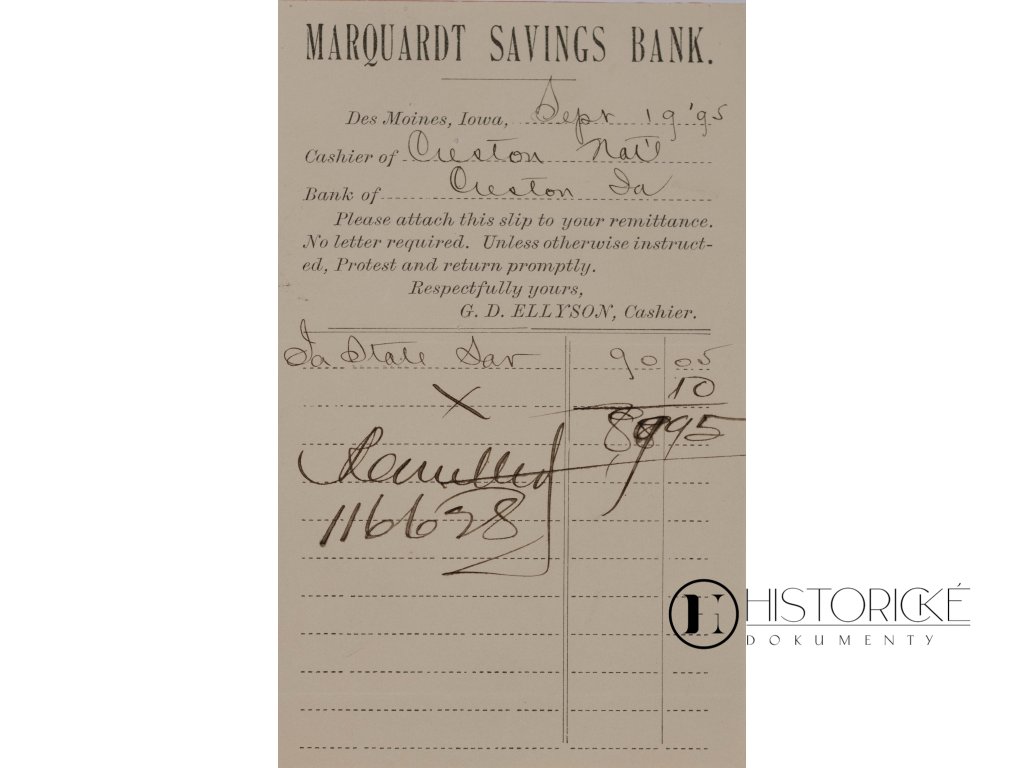 MARQUARDT SAVINGS BANK.
Des Moines, Iowa, Sept 19 '95
Cashier of Creston Nat'l
Bank of Creston Ia
Please attach this slip to your remittance.
No letter required. Unless otherwise instruct-
ed, Protest and return promptly.
Respectfully yours,
G. D. ELLYSON, Cashier.
Ia State Sav 90 05
X 10
89 95
Remitted
116628
HISTORICKÉ
DOKUMENTY